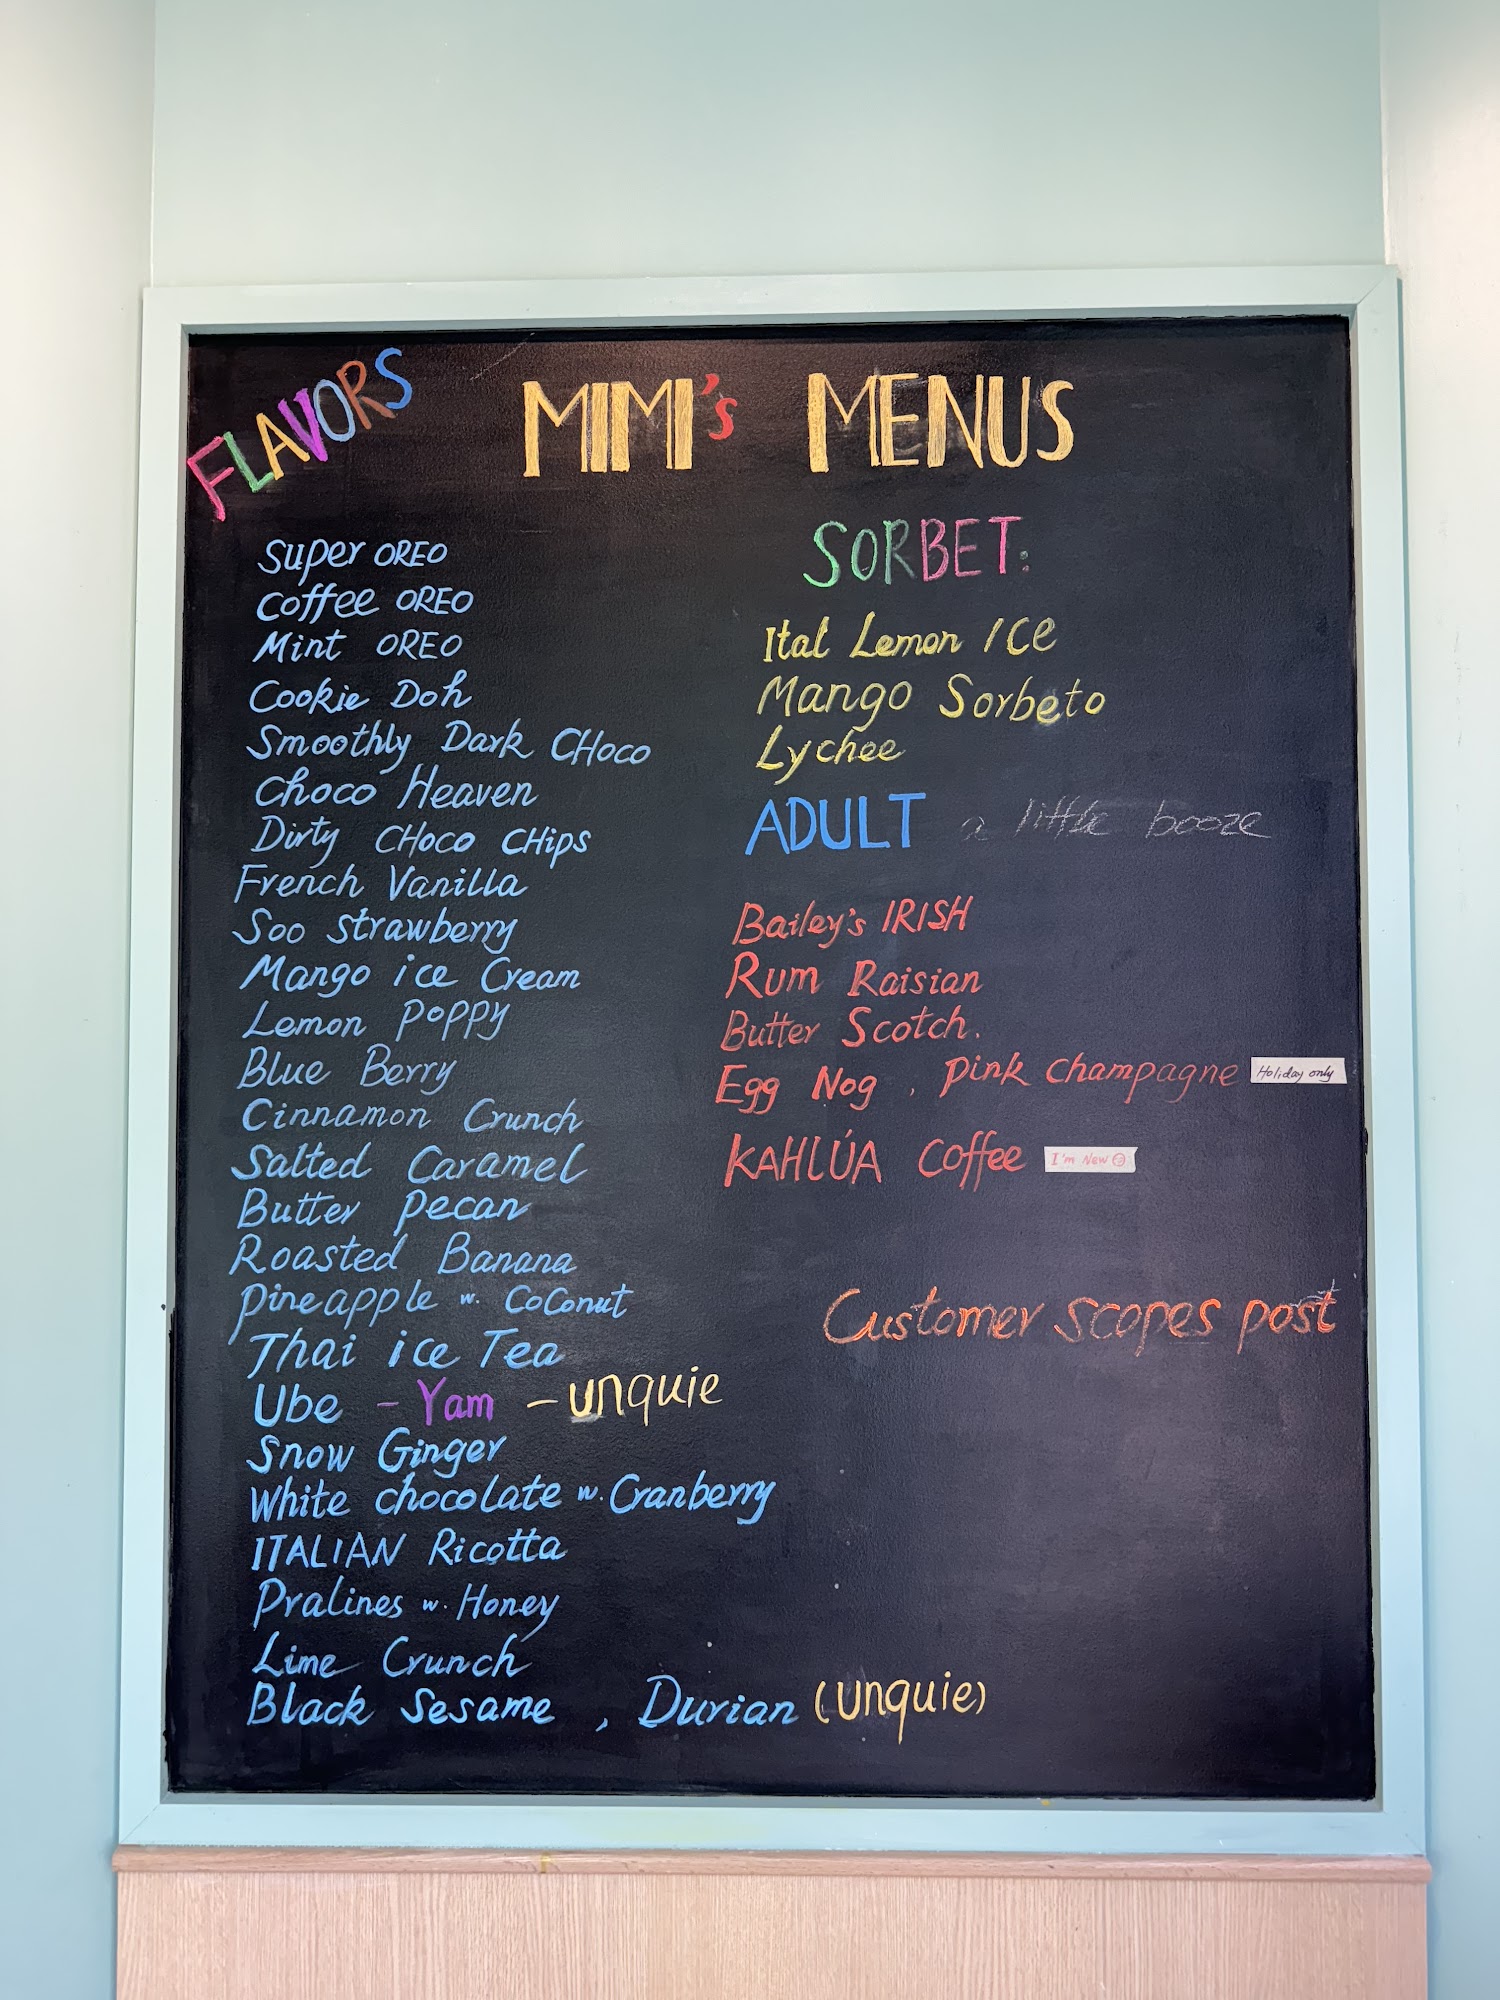 FLAVORS
MIMI's MENUS
Super OREO
Coffee OREO
Mint OREO
Cookie Doh
Smoothly Dark CHoco
Choco Heaven
Dirty CHoco CHips
French Vanilla
Soo Strawberry
Mango ice Cream
Lemon Poppy
Blue Berry
Cinnamon Crunch
Salted Caramel
Butter Pecan
Roasted Banana
Pineapple w. CoConut
Thai ice Tea
Ube - Yam - unquie
Snow Ginger
White chocolate w. Cranberry
ITALIAN Ricotta
Pralines w. Honey
Lime Crunch
Black Sesame , Durian (unquie)
SORBET:
Ital Lemon ICe
Mango Sorbeto
Lychee
ADULT a little booze
Bailey's IRISH
Rum Raisian
Butter Scotch.
Egg Nog , Pink Champagne Holiday only
KAHLÚA Coffee I'm New
Customer scopes post